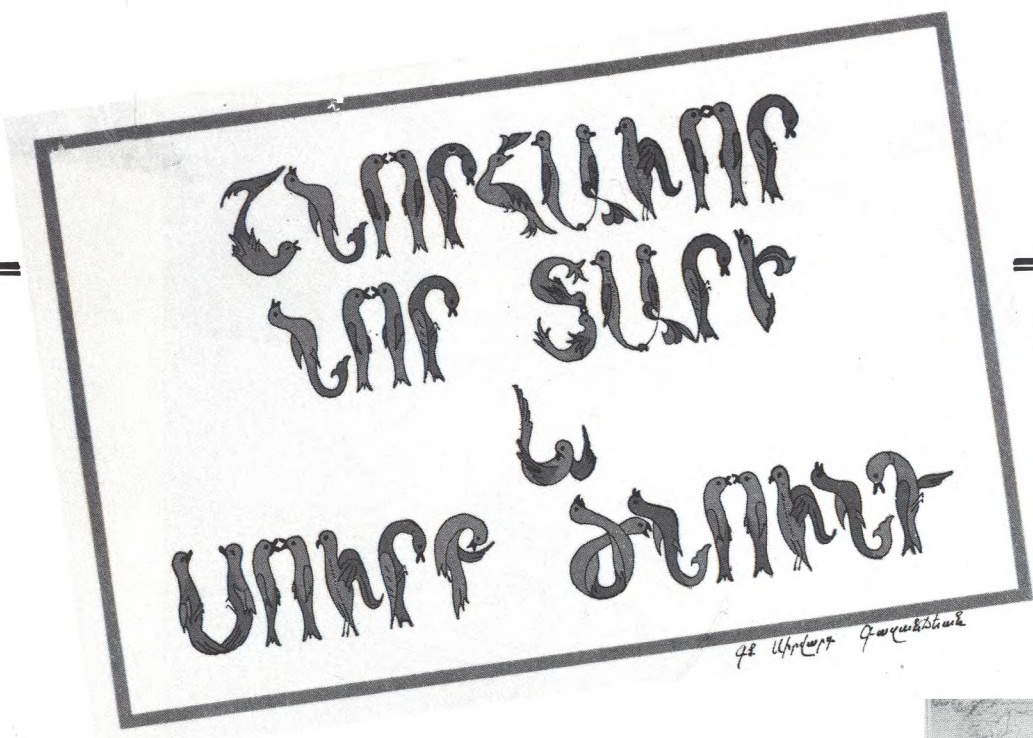 Շնորհաւոր
Նոր Տարի
և
Սուրբ Ծնունդ
Գծ Սիրվարդ